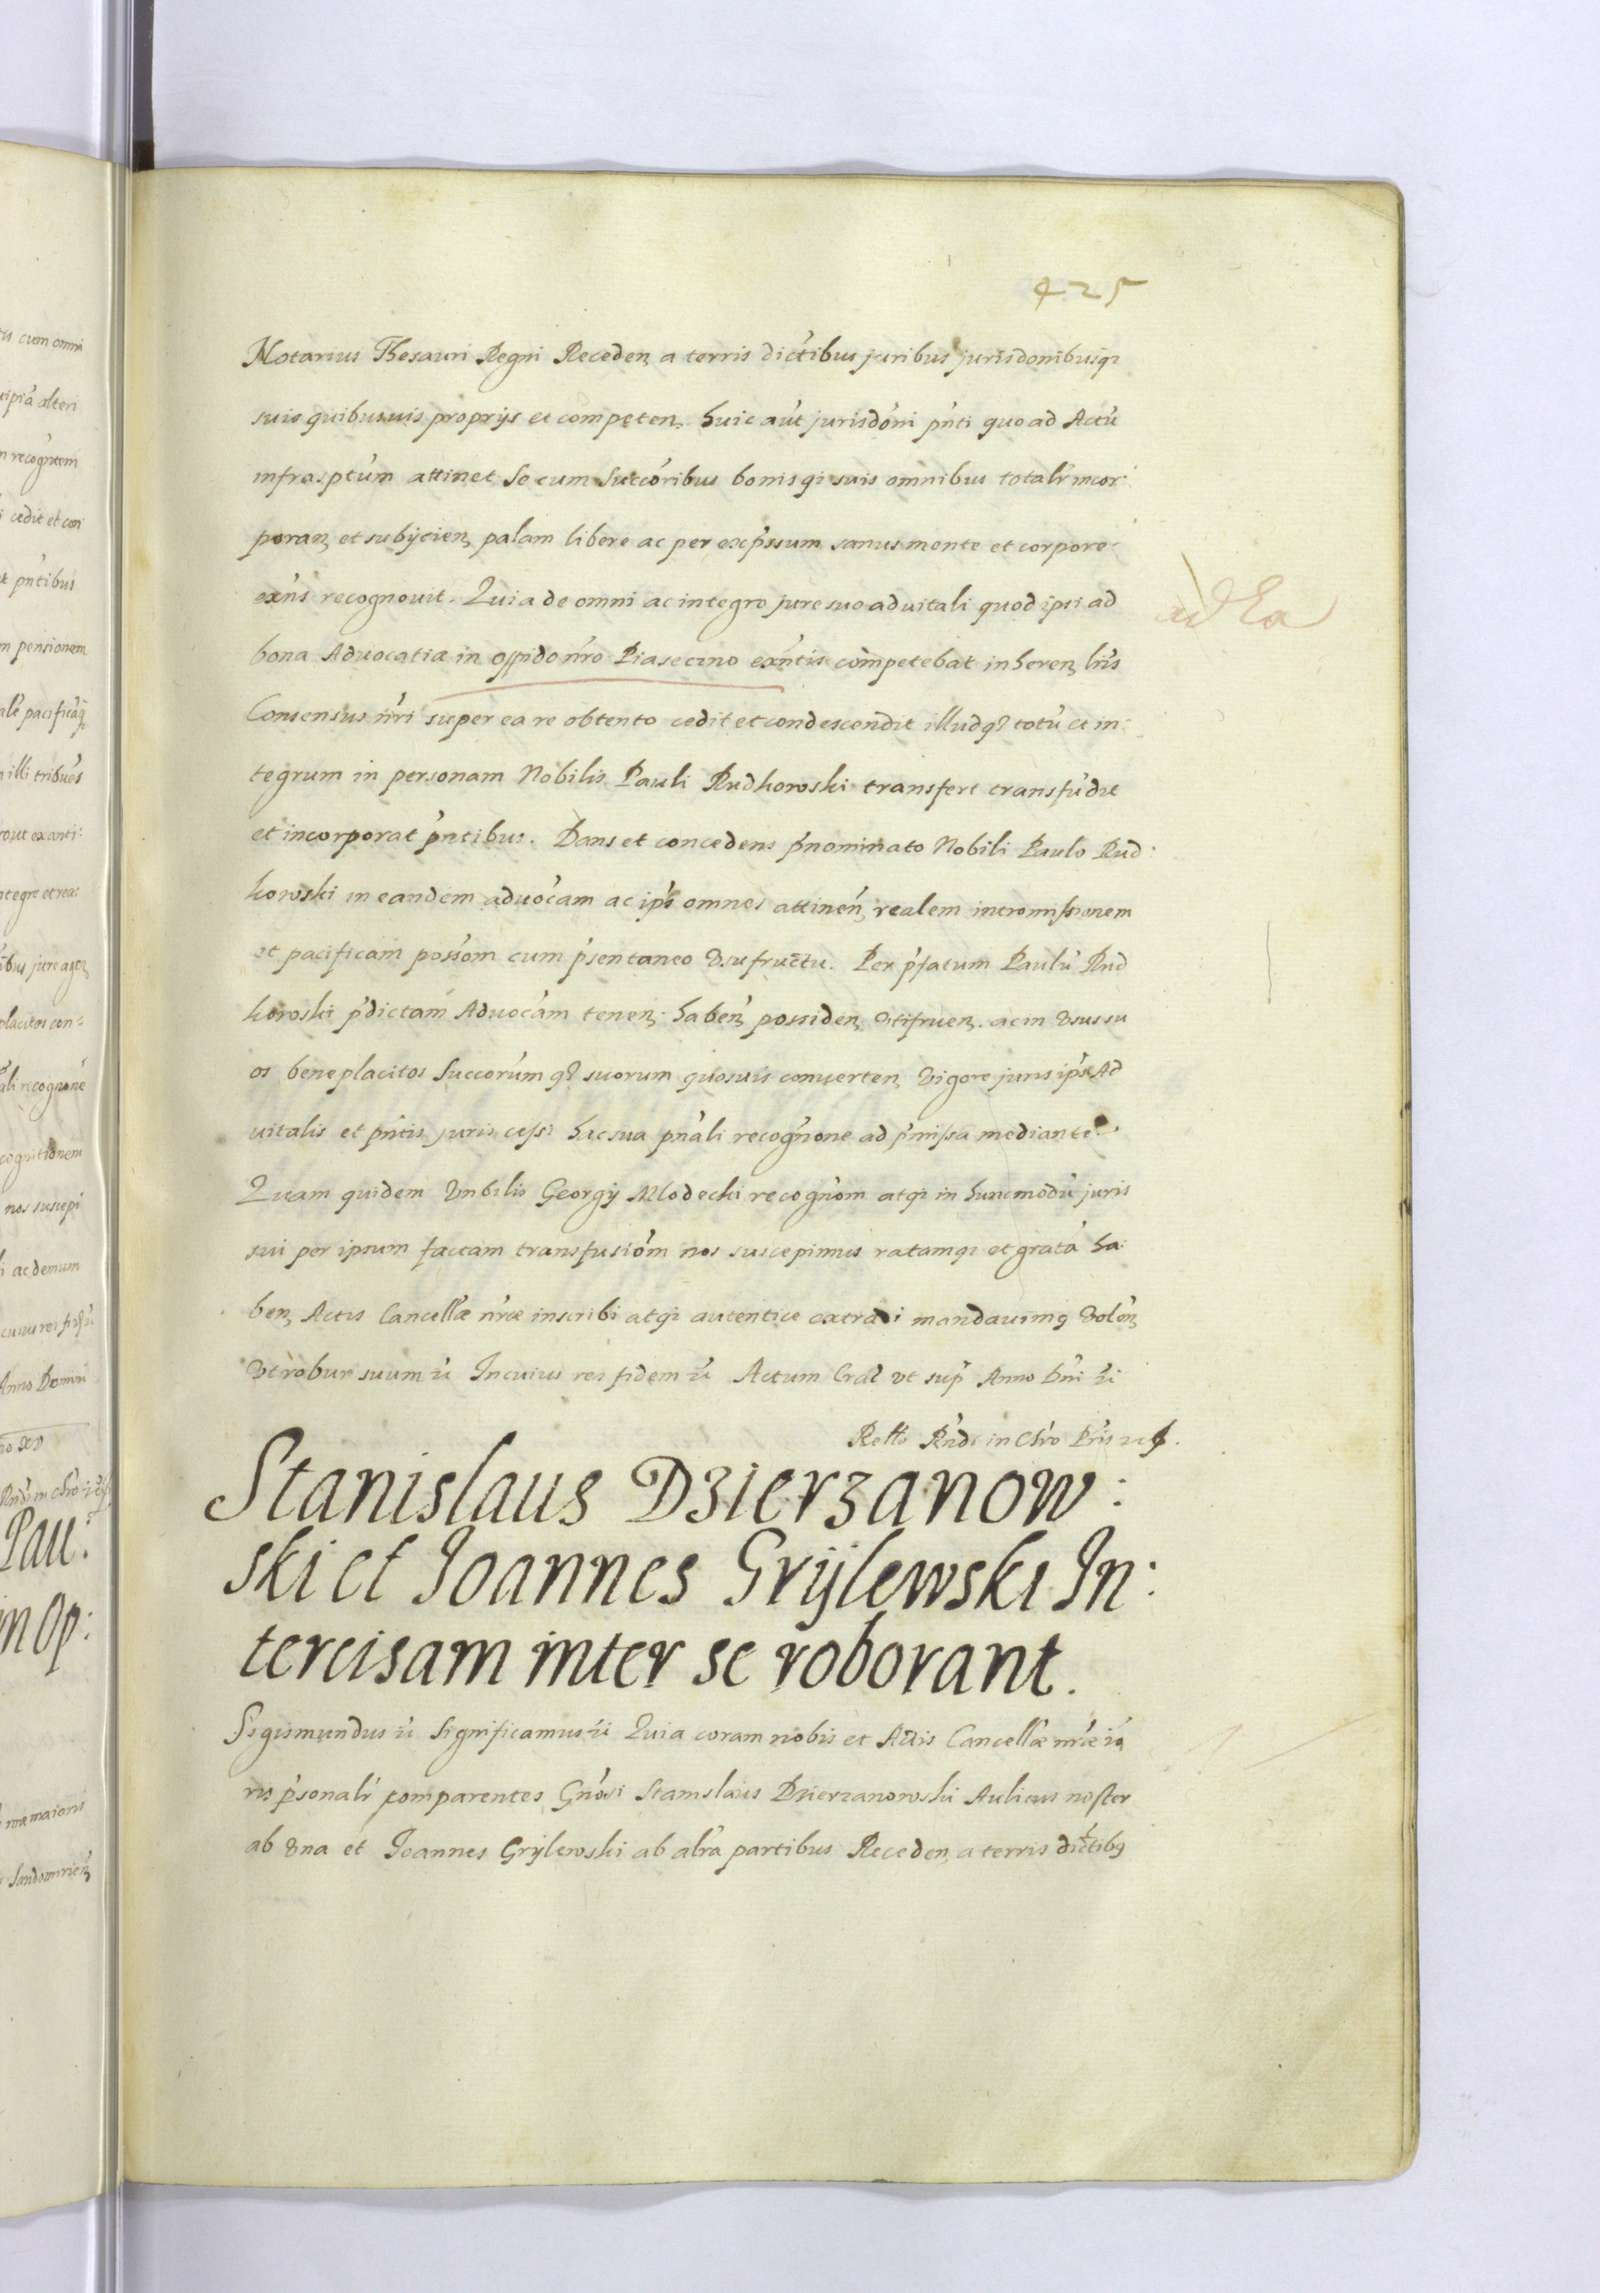 425
Notarius Thesauri Regni Receden a terris districtibus juribus jurisdonibusq
suis quibusuis proprijs et competen. huic aut jurisdoni pnti quo ad Actu
infrasptum attinet Se cum Succoribus bonisqi suis omnibus totalr incor:
poran et subijcien palam libere ac per expssum sanus mente et corpore
exns recognouit. Quia de omni ac integro jure suo aduitali quod ipsi ad
ad Ea
bona Aduocatia in oppido nro Piaseczno exntis competebat inheren lris
Consensus nri super ea re obtento cedit et condescendit illudq totu et in:
tegrum in personam Nobilis Pauli Rudkowski transfert transfudit
et incorporat pntibus. Dans et concedens pnominato Nobili Paulo Rud:
kowski in eandem aduocam ac ips omnes attinen realem intromissionem
et pacificam possom cum psentaneo Vsufructu. Per pfatum Paulu Rud
kowski pdictam Aduocam tenen haben possiden Vtifruen. ac in Vsus su
os beneplacitos Succorum q suorum quosuis conuerten Vigore juris ipse Ad
uitalis et pntis juris cessi hac sua pnali recognone ad pmissa mediante.
Quam quidem Vnbilis Georgij Mlodecki recognom atqi in hunc modu juris
sui per ipsum factam transfusiom nos suscepimus ratamqi et grata ha:
ben Actis Cancellæ nræ inscribi atqi autentice extradi mandauimg Volen
Vt robur suum Incuius rei fidem Actum Crac vt sup Anno Dni
Retto Rndi in Chro Pris
Stanislaus Dzierzanow:
ski et Joannes Grijlewski In:
tercisam inter se roborant.
Sigismundus Significamus Quia coram nobis et Actis Cancellæ nræ io
ris psonalr comparentes Gnosi Stanislaus Dzierzanowski Aulicus noster
ab Vna et Joannes Grijlewski ab alra partibus Receden a terris dictibg